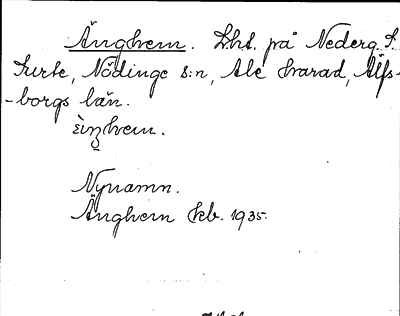 Änghem. Lht. på Nederg. S.
Surte, Nödinge s:n, Ale härad, Älfs-
-borgs län.
Nynamn.
Änghem kb. 1935.